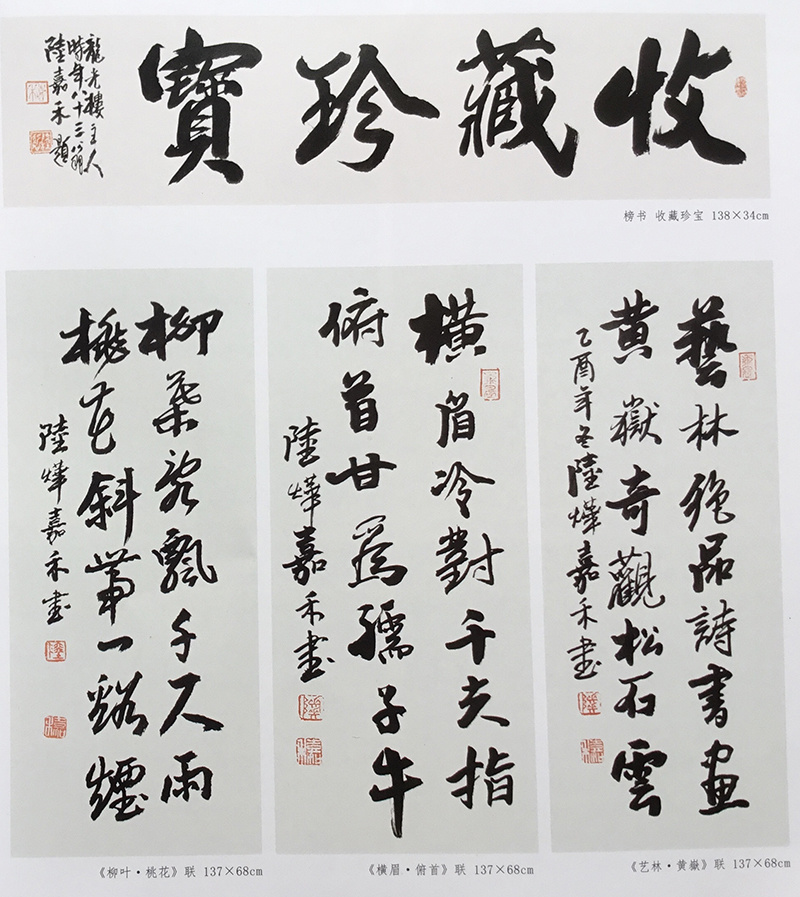 收藏珍寶
龍光樓主人
時年八十三
陸嘉禾題
榜书 收藏珍宝 138×34cm
藝林絕品詩書畫
黄嶽奇觀松石雲
乙酉年冬陸燁嘉禾書
《艺林·黄嶽》联 137×68cm
橫眉冷對千夫指
俯首甘爲孺子牛
陸燁嘉禾書
《横眉·俯首》联 137×68cm
柳葉亂飄千尺雨
桃花斜帶一谿煙
陸燁嘉禾書
《柳叶·桃花》联 137×68cm